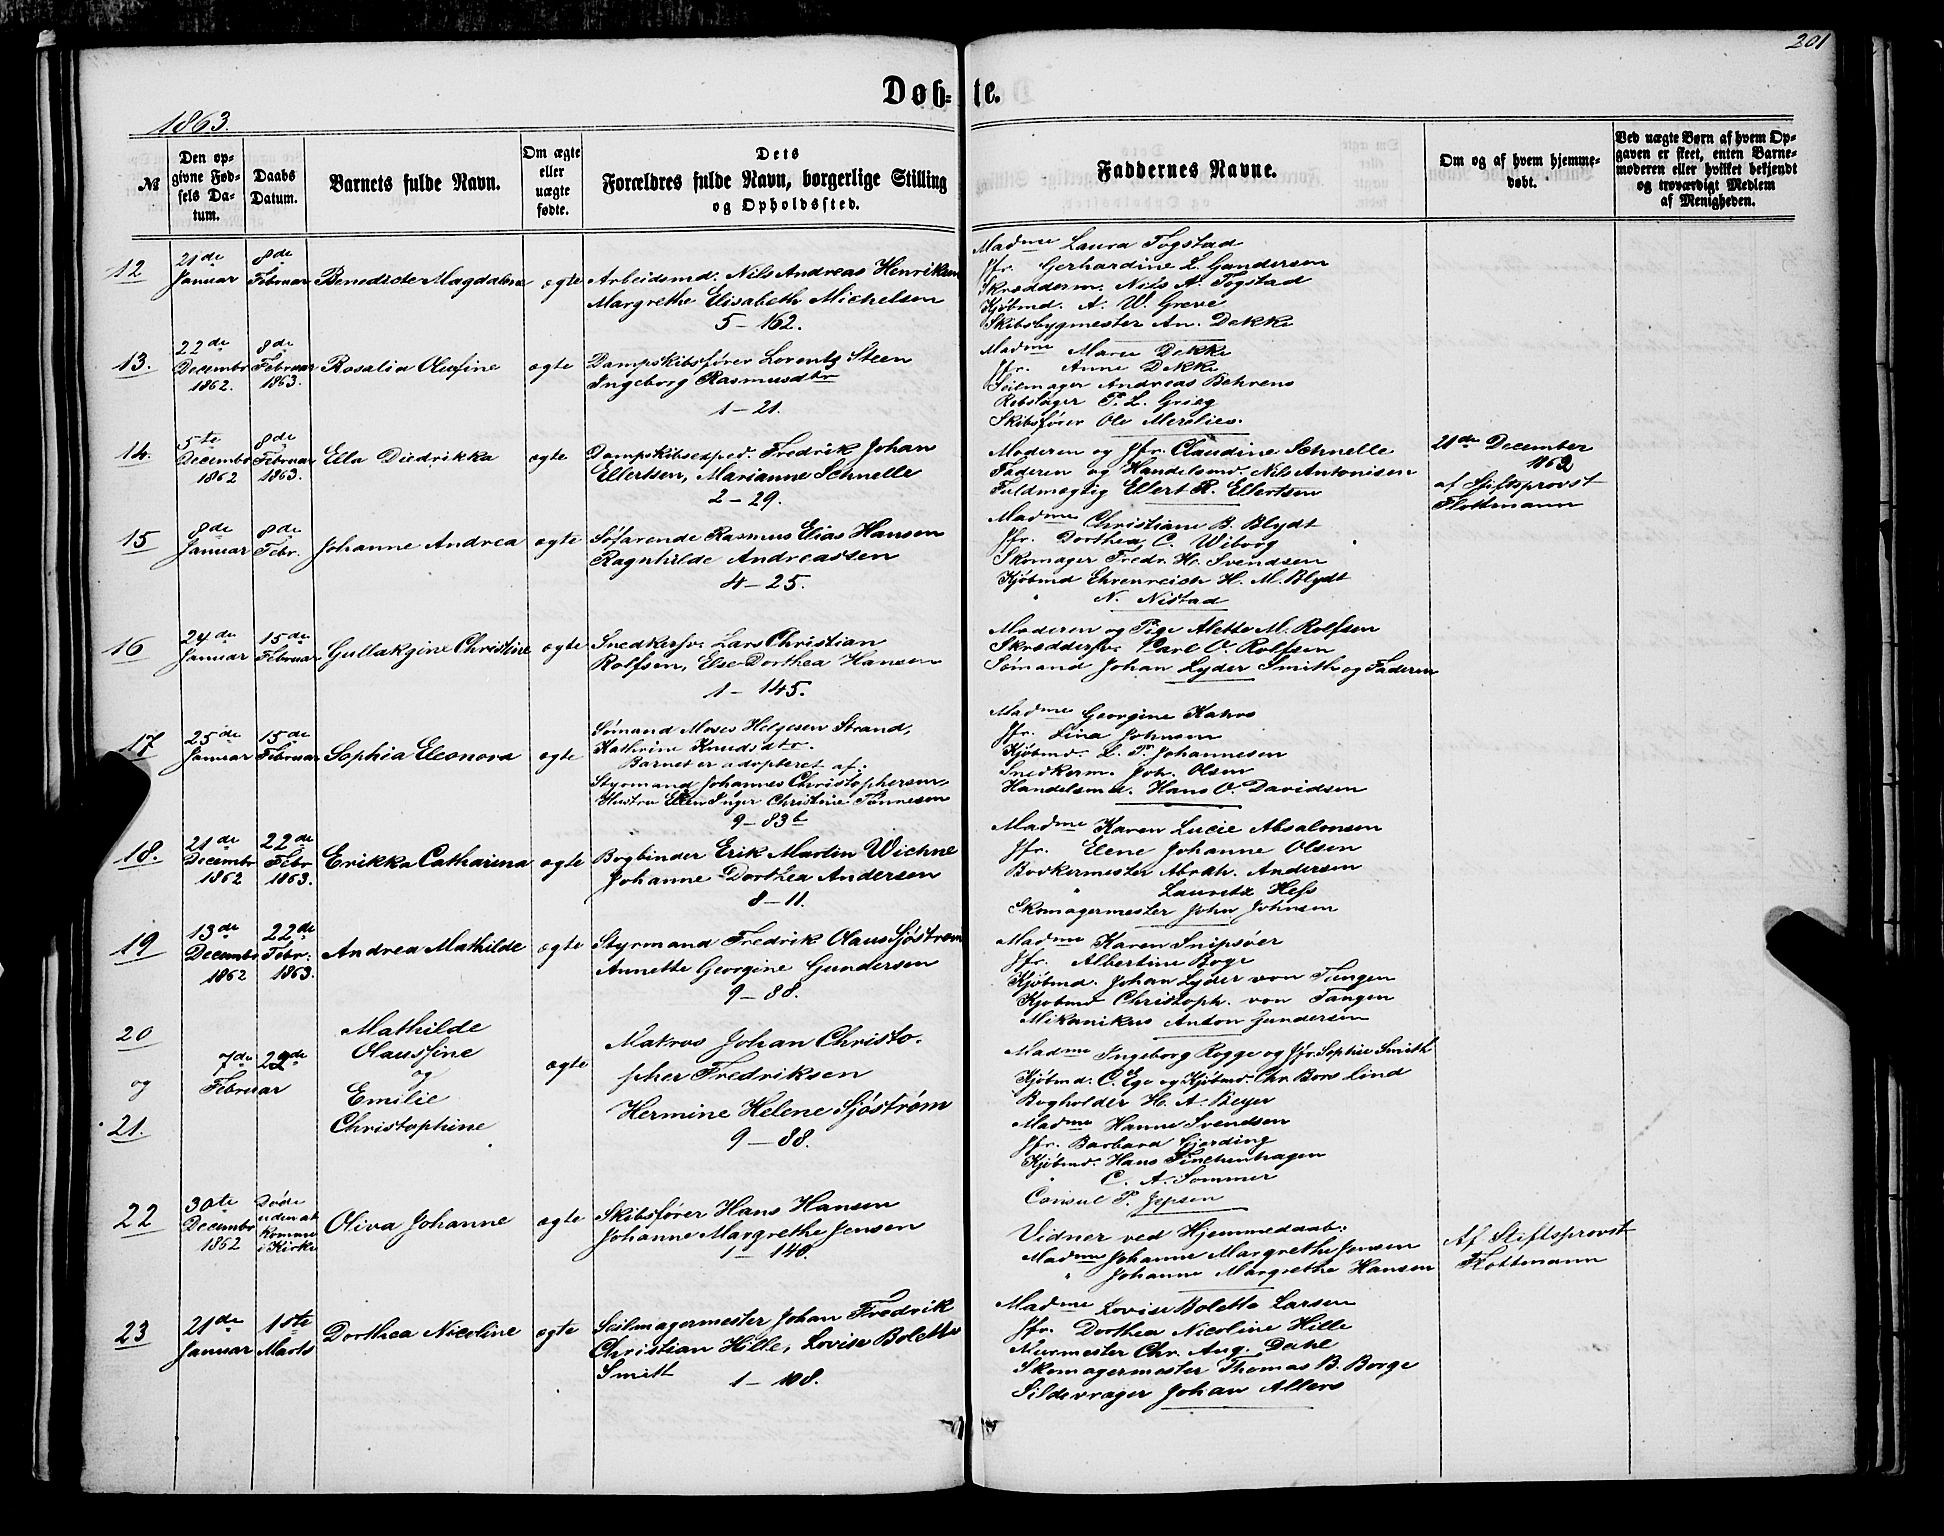 201
Døb- te.
1863.
№
Den op-
givne Fød-
sels Da-
tum.
Daabs
Datum.
Barnets fulde Navn.
Om ægte
eller
uægte
fødte.
Dets
Forældres fulde Navn, borgerlige Stilling
og Opholdssted.
Faddernes Navne.
Om og af hvem hjemme-
døbt.
Ved uægte Børn af hvem Op-
gaven er skeet, enten Barne-
moderen eller hvilket bekjendt
og troværdigt Medlem
af Menigheden.
12
21de
Januar
8de
Februar
Benedicte Magdalena
ægte
Arbeidsmd. Nils Andreas Henriksen
Margrethe Elisabeth Michelsen
5 - 162.
Madme Laura Fogstad
Jfr. Gerhardine L. Gundersen
Skrædderm. Nils A. Fogstad
Kjøbmd. A. W. Greve
Skibsbygmester An. Dekke
13.
22de
Decembr
1862.
8de
Februar
1863.
Rosalia Olufine
ægte
Dampskibsfører Lorentz Steen
Ingeborg Rasmusdtr
1 - 21.
Madme Marie Dekke
Jfr. Anne Dekke
Seilmager Andreas Behrens
Rebslager P. L. Grieg
Skibsfører Ole
14.
5te
Decembr
1862
8de
Februar
1863.
Ella Diedrikka
ægte
Dampskibsexped. Fredrik Johan
Ellertsen, Marianne Schnelle
2 - 29.
Moderen og Jfr. Claudine Schnelle
Faderen og Handelsmd. Nils Antonisen
Fuldmægtig Ellert R. Ellertsen
21de December
1862
af Stiftsprovst
Flottmann
15
8de
Januar
8de
Febr.
Johanne Andrea
ægte
Søfarende Rasmus Elias Hansen
Ragnhilde Andreassen
4 - 25.
Madme Christiane B. Blydt
Jfr. Dorthea C. Wiborg
Skomager Fredr. Hr. Svendsen
Kjøbmd Ehrenreich H. M. Blydt
" N. Nistad
16
24de
Januar
15de
Februar
Gullakgine Christine
ægte
Snedkersv. Lars Christian
Rolfsen, Else Dorthea Hansen
1 - 145.
Moderen og Pige Alette M. Rolfsen
Skræddersv. Carl O. Rolfsen
Sømand Johan Lyder Smith og Faderen
17
25de
Januar
15de
Februar
Sophia Eleonora
ægte
Sømand Moses Helgesen Strand,
Kathrine Knudsdtr.
Barnet er adopteret af:
Styrmand Johannes Christophersen,
Hustru Ellen Inger Christine Tønnesen
9 - 83b
Madme Georgine Kahrs
Jfr. Lina Johnsen
Kjøbmd. L. P. Johannesen
Snedkerm. Joh. Olsen
Handelsmd. Hans O. Davidsen
18.
21de
Decembr
1862
22de
Febr
1863.
Erikka Catharina
ægte
Bogbinder Erik Martin Wichne
Johanne Dorthea Andersen
8 - 11.
Madme Karen Lucie Absalonsen
Jfr. Elene Johanne Olsen
Bødkermester Abrah. Andersen
" Lauritz Hess
Skomagermester John Johnsen
19
13de
Decembr
1862
22de
Febr.
1863.
Andrea Mathilde
ægte
Styrmand Fredrik Olaus Sjøstrøm
Annette Georgine Gundersen
9 - 88.
Madme Karen Snipsøer
Jfr. Albertine Boge
Kjøbmd. Johan Lyder von Tangen
Kjøbmd Christoph. von Tangen
Mikanikus Anton Gundersen
20
og
21.
7de 22de
Februar
Mathilde
Olausfine
og
Emilie
Christophine
ægte
Matros Johan Christo-
pher Fredriksen
Hermine Helene Sjøstrøm
9 - 88.
Madme Ingeborg Rogge og Jfr. Sophie Smith
Kjøbmd. C. Ege og Kjøbmd. Chr. Bors Lind
Bogholder H. A. Beyer
Madme Hanne Svendsen
Jfr. Barbara Gjerding
Kjøbmd. Hans Finckenhagen
" C. A. Sommer
Consul P. Jepsen
22
30te
Decembr
1862
Døde
uden at
komme
i Kirke
Oliva Johanne
ægte
Skibsfører Hans Hansen
Johanne Margrethe Jensen
1 - 140.
Vidner ved Hjemmedaab:
Madme Johanne Margrethe Jensen
" Johanne Margrethe Hansen
Af Stiftsprovst
Flottmann
23
21de
Januar
1ste
Marts
Dorthea Nicoline
ægte
Seilmagermester Johan Fredrik
Christian Hille, Lovise Bolette
Smitt
1 - 108.
Madme Lovise Bolette Larsen
Jfr. Dorthea Nicoline Hille
Murmester Chr. Aug. Dahl
Skomagermester Thomas B. Borge
Sildevrager Johan Allers